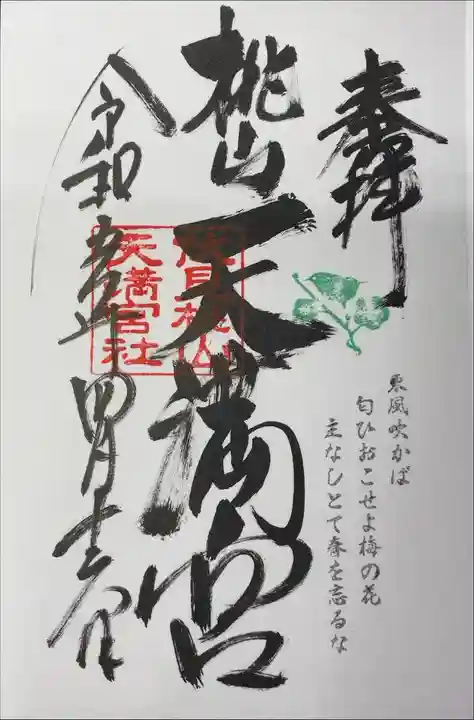 奉拝
東風吹かば
匂ひおこせよ梅の花
主なしとて春を忘るな
桃山天満宮
伏見桃山
天満宮社
令和五年四月